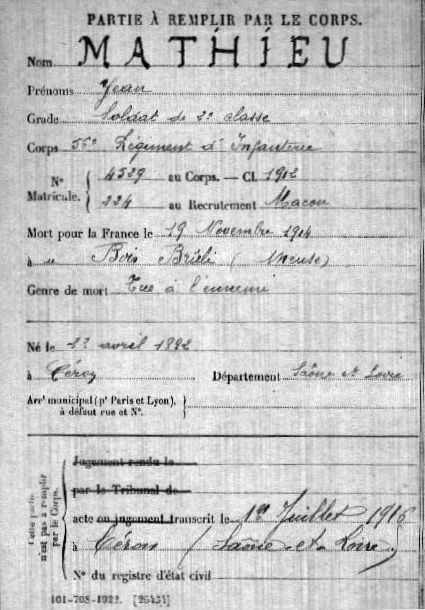 PARTIE À REMPLIR PAR LE CORPS.
Nom MATHIEU
Prénoms Jean
Grade Soldat de 2e classe
Corps 56e Régiment d'Infanterie
N° Matricule. { 4529 au Corps. — Cl. 1902
224 au Recrutement Macon
Mort pour la France le 19 Novembre 1914
à Bois Brûlé (Meuse)
Genre de mort Tué à l'ennemi
Né le avril 1882
à Département Saône et Loire
Arrt municipal (pr Paris et Lyon), à défaut rue et N°. }
Cette partie n'est pas à remplir par le Corps.
Jugement rendu le
par le Tribunal de
acte ou jugement transcrit le 1er Juillet 1916
à (Saône-et-Loire)
N° du registre d'état civil
101-708-1922. [26434]